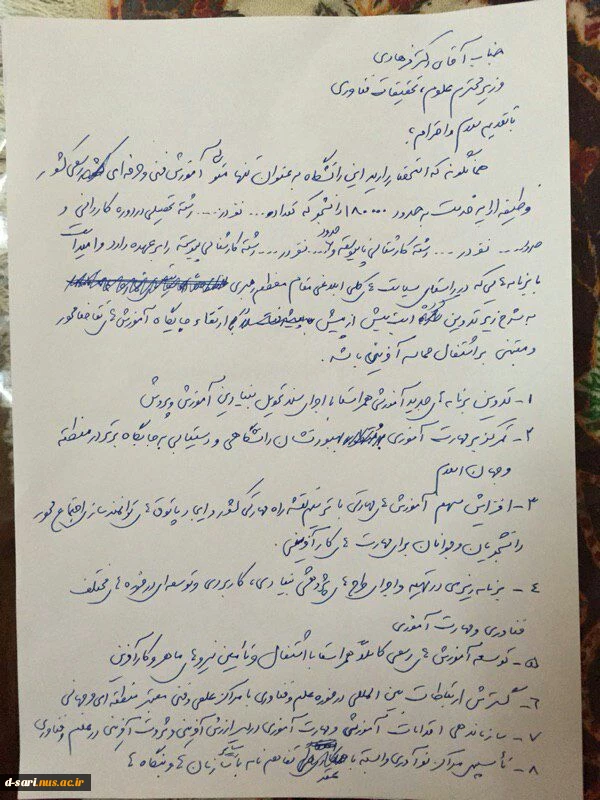 جناب آقای دکتر فرهادی
وزیر محترم علوم، تحقیقات فناوری
با تقدیم سلام و احترام؛
همانگونه که استحضار دارید این دانشگاه به عنوان تنها متولی آموزش فنی و حرفه‌ای رسمی کشور
وظیفه ارایه خدمت به حدود ۱۸۰۰۰۰ دانشجو که تعداد ... نفر در ... رشته تحصیلی در دوره کاردانی و
حدود ... نفر در ... رشته کارشناسی ناپیوسته و حدود ... نفر در ... رشته کارشناسی پیوسته را بر عهده دارد و امید است
با برنامه‌هایی که در راستای سیاست‌های کلی ابلاغی مقام معظم رهبری
به شرح زیر تدوین است بیش از پیش ارتقاء جایگاه آموزش‌های تقاضا محور
و مبتنی بر اشتغال حماسه آفرینی باشد.
۱- تدوین برنامه‌های جدید آموزشی همراستا با اجرای سند تحول بنیادین آموزش و پرورش
۲- تمرکز بر مهارت آموزی دانشگاهی و دستیابی به جایگاه برتر در منطقه
و جهان اسلام
۳- افزایش سهم آموزش‌های مهارتی با ترسیم نقشه راه مهارتی کشور و ایجاد پاتوق‌های توانمندساز و اجتماع محور
دانشجویان و جوانان برای مهارت‌های کارآفرینی.
۴- برنامه‌ریزی در تهیه و اجرای طرح‌های پژوهشی بنیادی، کاربردی و توسعه‌ای در حوزه‌های مختلف
فناوری و مهارت آموزی
۵- توسعه آموزش‌های رسمی کاملاً همراستا با اشتغال و تامین نیروهای ماهر و کارآفرین
۶- گسترش ارتباطات بین المللی در حوزه علم و فناوری با مراکز علمی و فنی معتبر منطقه‌ای و جهانی
۷- سازماندهی اقدامات آموزشی و مهارت آموزی در مسیر ارزش آفرینی و ثروت آفرینی در علم و فناوری
۸- تأسیس مراکز نوآوری وابسته با عقد تفاهم نامه با سازمان‌ها و بنگاه‌ها
d-sari.nus.ac.ir